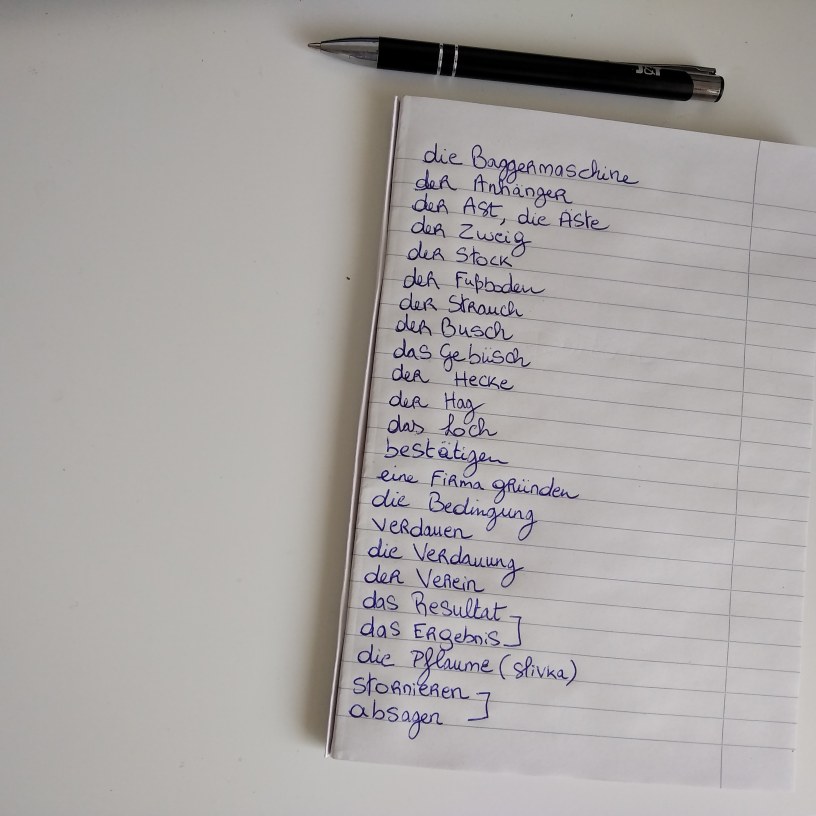 J&T
die Baggermaschine
der Anhänger
der Ast, die Äste
der Zweig
der Stock
der Fußboden
der Strauch
der Busch
das Gebüsch
der Hecke
der Hag
das Loch
bestätigen
eine Firma gründen
die Bedingung
verdauen
die Verdauung
der Verein
das Resultat ]
das Ergebnis ]
die Pflaume (slivka)
stornieren ]
absagen ]